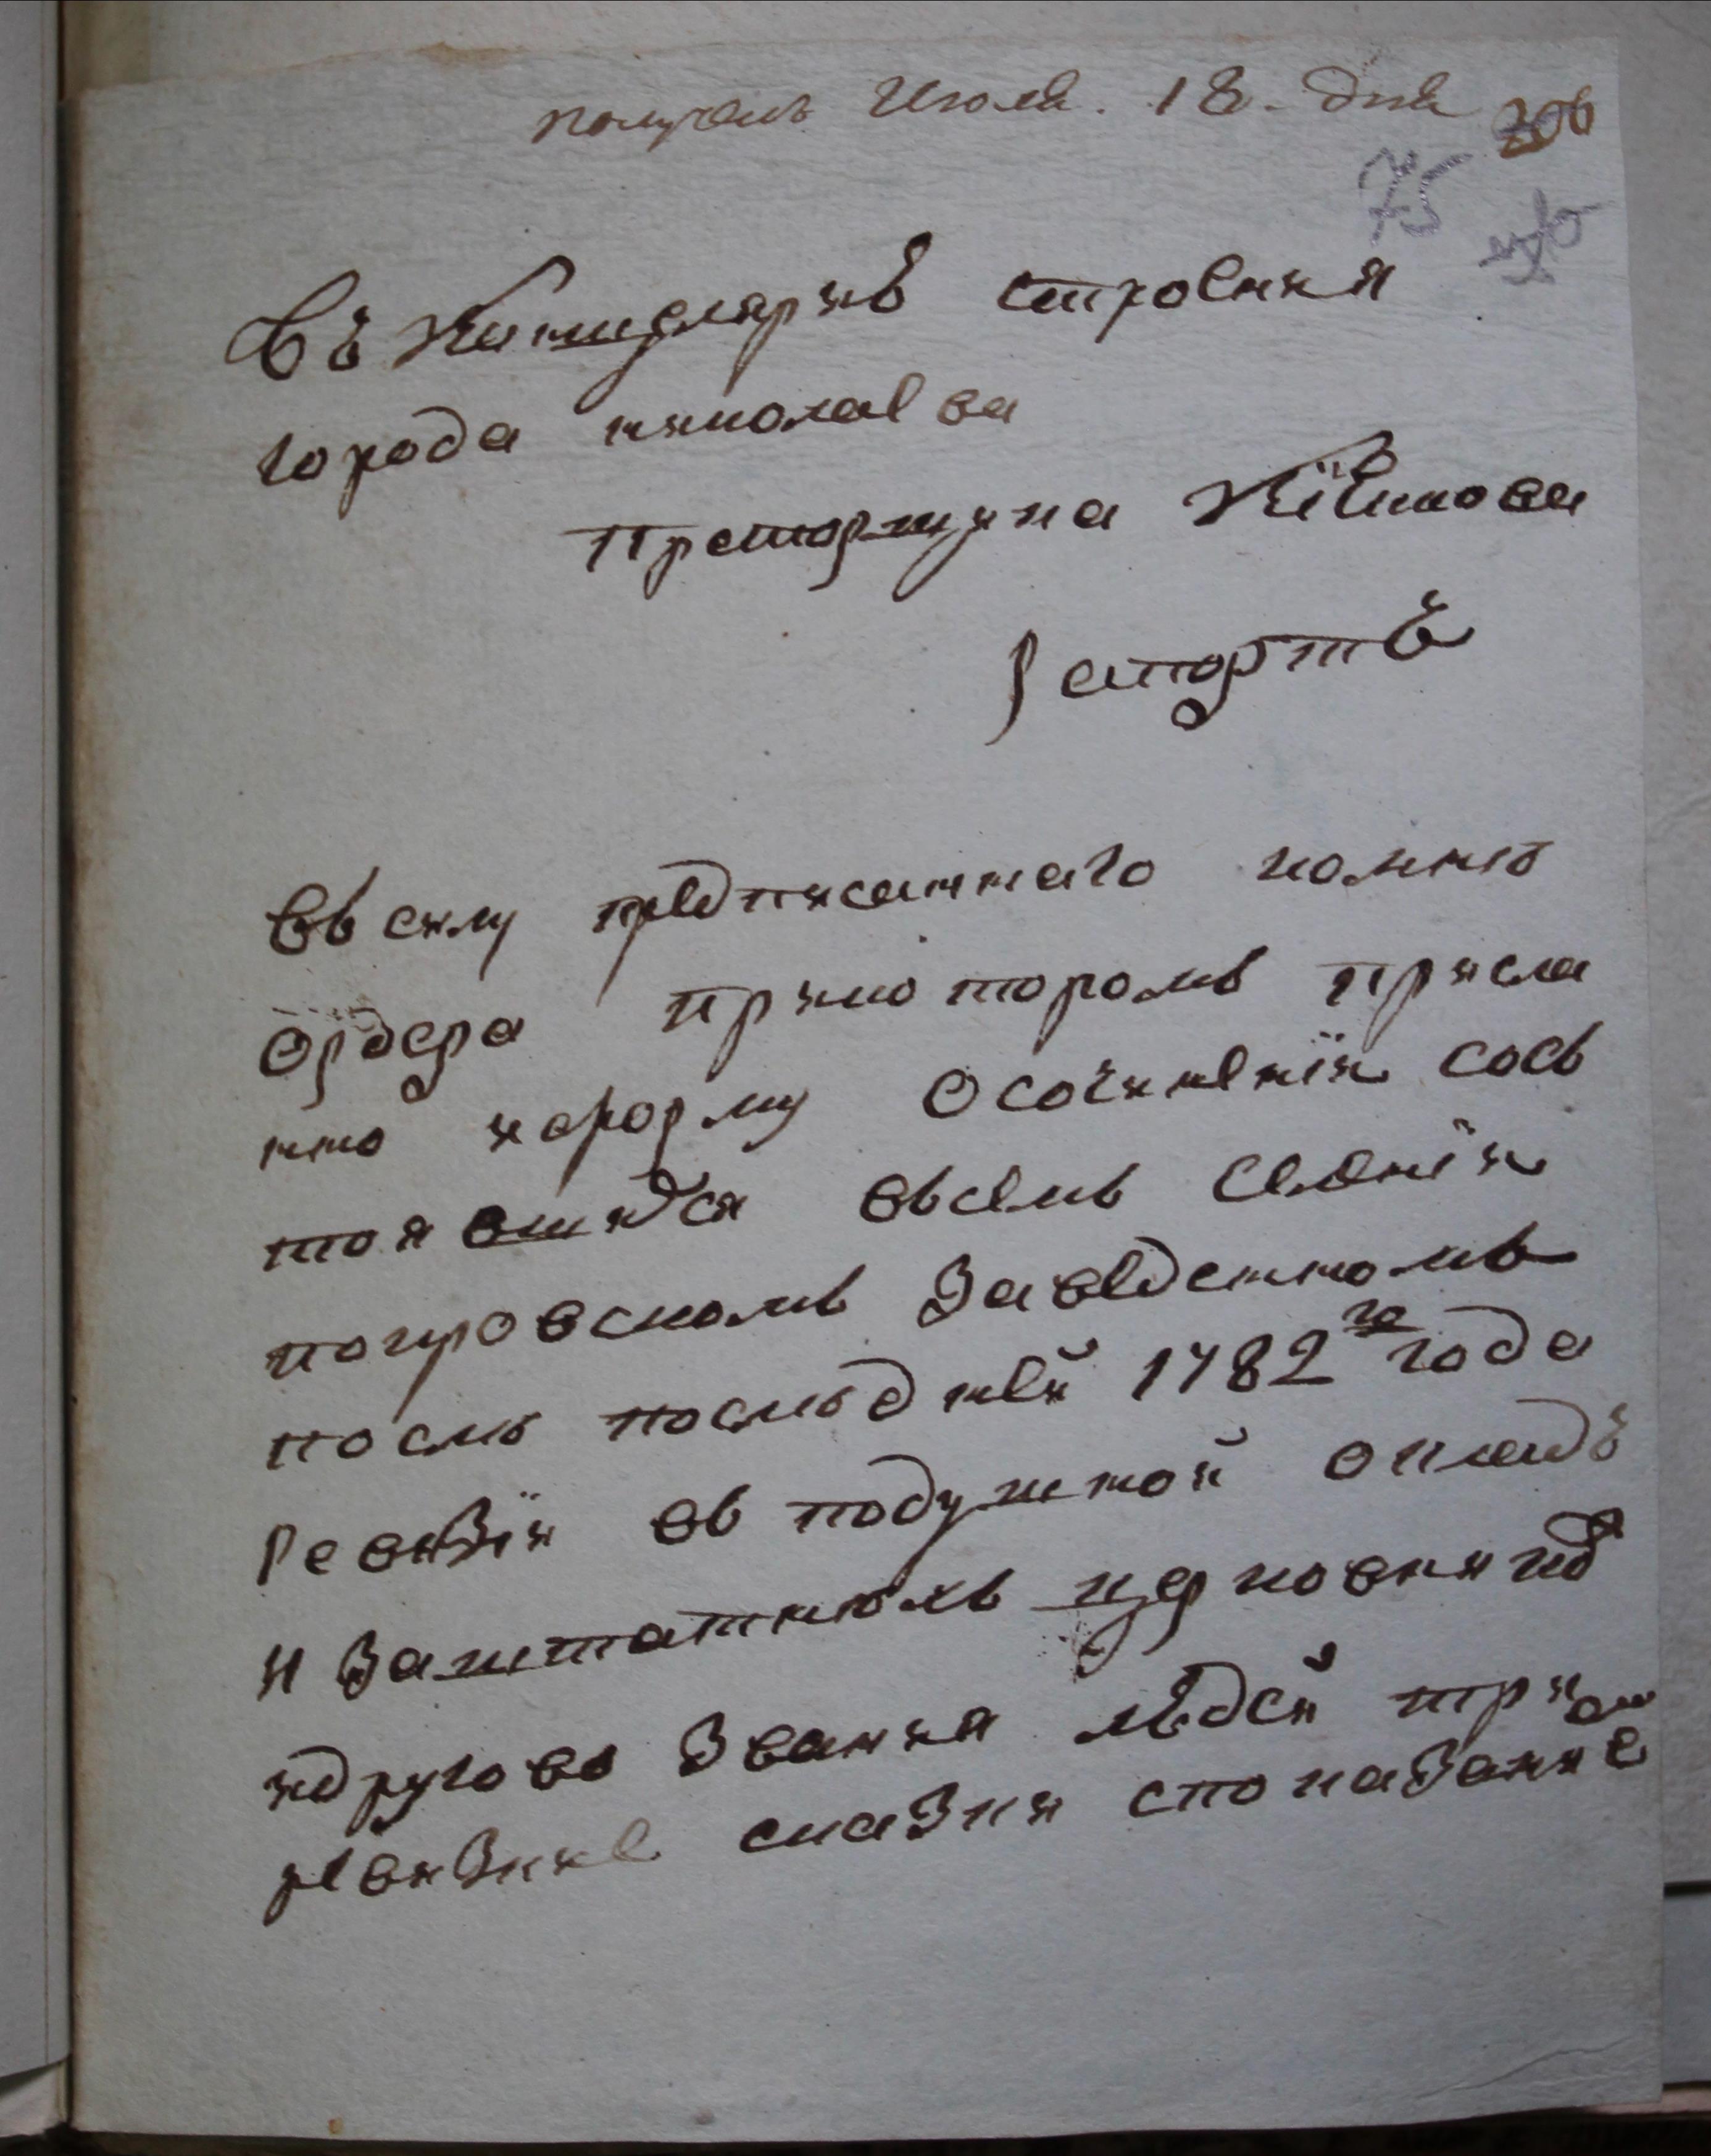 получень Июля. 18. дня 306
75
Въ Канцелярию строения
города николаева
Прапорщика
Рапортъ
Въ силу предписаннаго комнѣ
ордера прикоторомъ присла
но иформу Осочинении сось
тоявшихся въсемъ Селении
покровскомъ Заведенномъ
послѣ последней 1782го года
Ревизии въ подушной окладъ
и Заштатныхъ церковникихъ
идругова Звания людей
ревизкие сказки спо казание